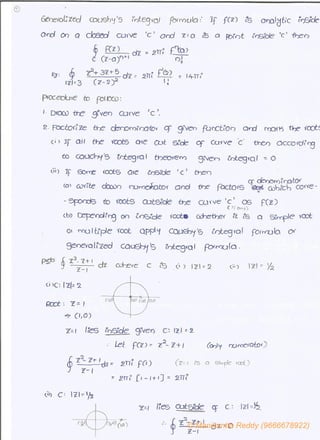 Generalized Cauchy's integral formula: If f(z) is analytic inside
and on a closed curve 'c' and z=a is a point inside 'c' then
∮c F(z)/(z-a)^(n+1) dz = 2πi f^n(a)/n!
Eg: ∮|z|=3 z²+3z+5/(z-2)² dz = 2πi f'(2)/1! = 14πi
procedure to follow:
1. Draw the given curve 'c'.
2. Factorize the denominator of given function and mark the roots
(i) If all the roots are out side of curve 'c' then according
to cauchy's integral theorem given integral = 0
(ii) If some roots are inside 'c' then
of denominator
(a) write down numerator and the factors which corre-
-sponds to roots outside the curve 'c' as F(z)
(b) Depending on inside roots whether it is a simple root
or multiple root apply cauchy's integral formula or
generalized cauchy's integral formula.
∮ z²-z+1/z-1 dz where c is (i) |z|=2 (ii) |z|=1/2
(i) C: |z|=2
Root: z=1
⇒ (1,0)
z=1 lies inside given c: |z|=2
Let f(z)= z²-z+1 (only numerator)
∮ z²-z+1/z-1 dz = 2πi f(1) (z=1 is a simple root)
= 2πi [1-1+1] = 2πi
(ii) C: |z|=1/2
z=1 lies outside of c: |z|=1/2
∴ ∮ z²-z+1/z-1 dz=0
Reddy (9666678922)